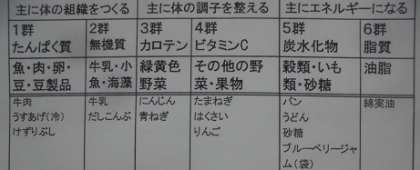 主に体の組織をつくる 主に体の調子を整える 主にエネルギーになる
1群 2群 3群 4群 5群 6群
たんぱく質 無機質 カロテン ビタミンC 炭水化物 脂質
魚・肉・卵・ 牛乳・小 緑黄色 その他の野 穀類・いも 油脂
豆・豆製品 魚・海藻 野菜 菜・果物 類・砂糖
牛肉 牛乳 にんじん たまねぎ パン 綿実油
うすあげ(冷) だしこんぶ 青ねぎ はくさい うどん
けずりぶし りんご 砂糖
ブルーベリージャ
ム(袋)